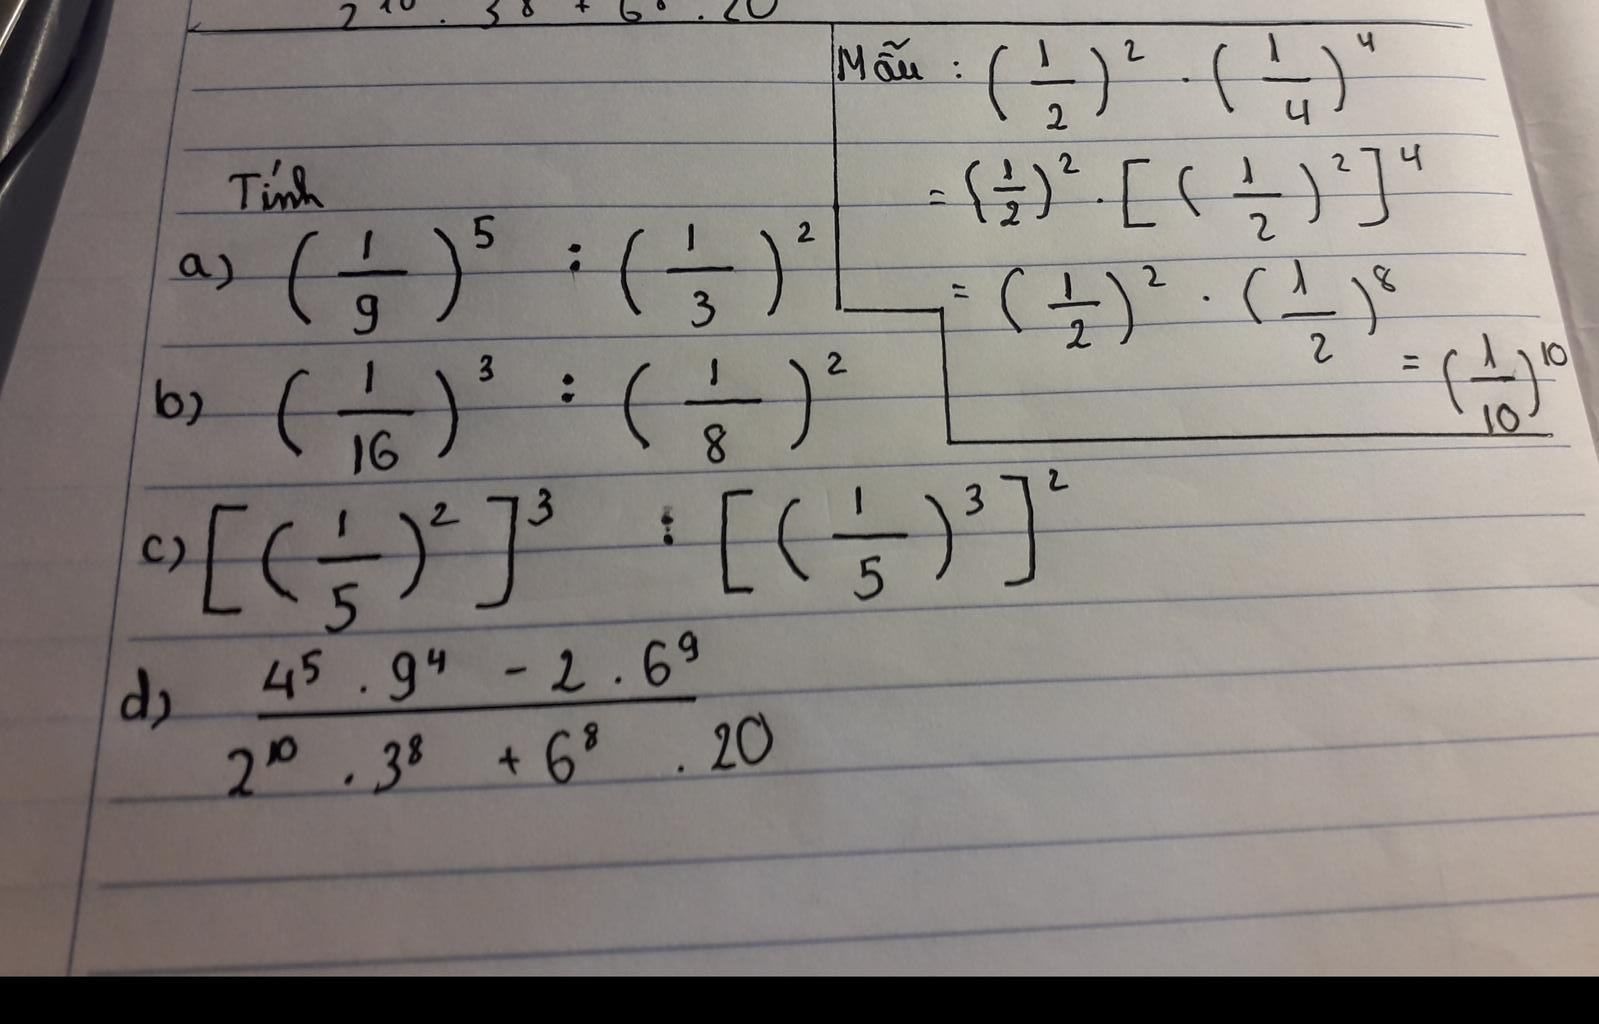 2¹⁰ . 3⁸ + 6⁸ . 20
Mẫu : (1/2)² . (1/4)⁴
= (1/2)² . [(1/2)²]⁴
= (1/2)² . (1/2)⁸
= (1/10)¹⁰
Tính
a) (1/9)⁵ : (1/3)²
b) (1/16)³ : (1/8)²
c) [(1/5)²]³ : [(1/5)³]²
d) (4⁵ . 9⁴ - 2 . 6⁹)/(2¹⁰ . 3⁸ + 6⁸ . 20)